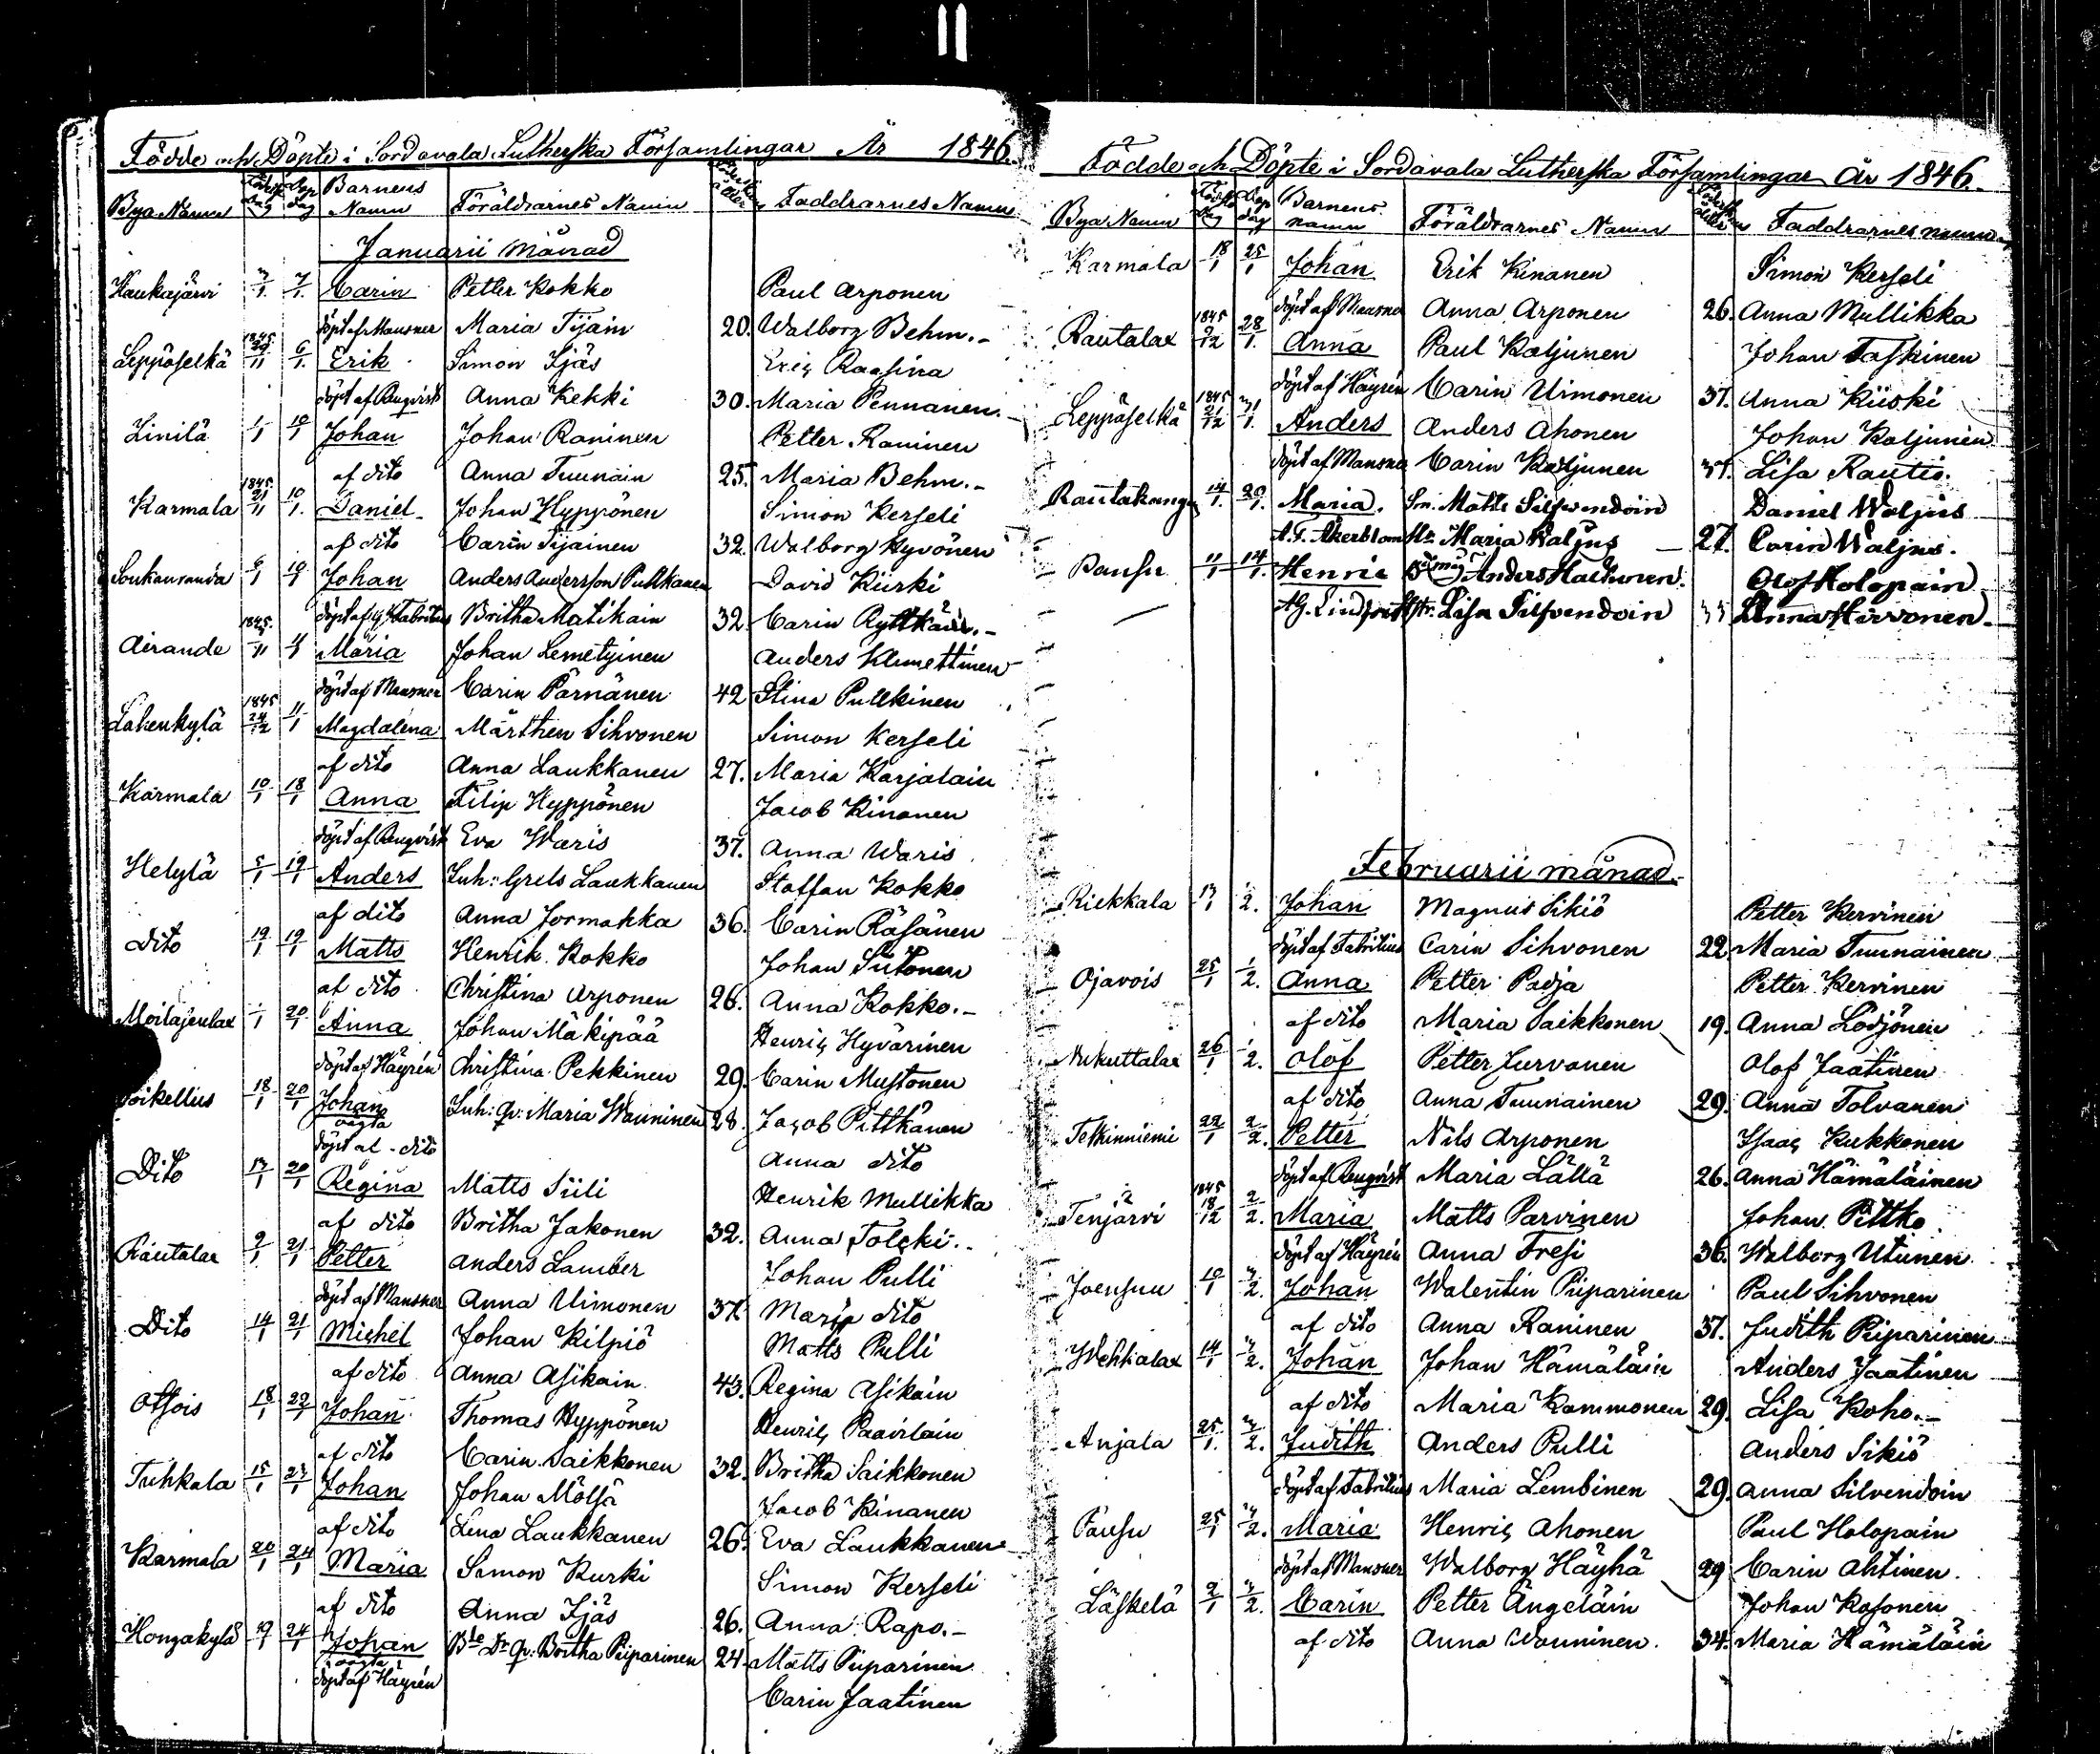 Födde och Döpte i Sordavala Lutherska Församlingar År 1846.
Bya Namn Födelse Dag Döp Dag Barnens Namn Föräldrarnes Namn Föderskans ålder Faddrarnes Namn
Januarii månad
Haukajärvi 3/1. 7/1. Carin Petter Kokko Paul Arponen
döpt af Mansner Maria Tijain 20. Walborg Behm.-
Leppäselkä 1845 29/11 6/1. Erik Simon Ijäs Eriq Raasina
döpt af Renqvist Anna Kekki 30. Maria Pennanen.
Linilä 1/1 10/1 Johan Johan Raninen Petter Raninen
af dito Anna Tuunain 25. Maria Behm.-
Karmala 1845. 21/11 10/1. Daniel Johan Hyppönen Simon Kerseli
af dito Carin Tijainen 32. Walborg Hyvönen
Soukanranda 6/1 10/1 Johan Anders Andersson Pulkkanen David Kiiski
döpt af Fabritius Britha Matikain 32. Carin Ryttkäin.-
Airande 1845. /11 Maria Johan Lemetyinen Anders Klemettinen
döpt af Mansner Carin Pärnänen 42 Stina Pulkkinen
Lahenkylä 1845 24/12 11/1 Magdalena Mårthen Sihvonen Simon Kerseli
af dito Anna Laukkanen 27. Maria Karjalain
Karmala 10/1 18/1 Anna Filip Hyppönen Jacob Kinanen
döpt af Renqvist Eva Waris 37. Anna Waris
Helylä 5/1 19/1 Anders Inh: Grels Laukkanen Staffan Kokko
af dito Anna Jormakka 36. Carin Räsänen
Dito 19/1 19/1 Matts Henrik Kokko Johan Sutonen
af dito Christina Arponen 26. Anna Kokko.-
Moilajenlax 1/1 20/1 Anna Johan Mäkipää Henriq Hyvärinen
döpt af Häyrén Christina Pekkinen 29. Carin Mustonen
oikellius 18/1 20/1 Johan oägta Inh: qv: Maria Wanninen 28. Jacob Pittkänen
döpt af dito Anna dito
Dito 13/1 20/1 Regina Matts Siili Henrik Mullikka
af dito Britha Jakonen 32. Anna Tolcki.
Rautalax 2/1 21/1 Petter Anders Lamber Johan Pulli
döpt af Mansner Anna Uimonen 37. Maria dito
Dito 14/1 21/1 Michel Johan Kilpiö Matts Pulli
af dito Anna Asikain 43. Regina Asikain
Otsois 18/1 22/1 Johan Thomas Hyppönen Henriq Paavilain
af dito Carin Saikkonen 32. Britha Saikkonen
Tuhkala 15/1 23/1 Johan Johan Mölsä Jacob Kinanen
af dito Lena Laukkanen 26. Eva Laukkanen
Karmala 20/1 24/1 Maria Simon Kurki Simon Kerseli
af dito Anna Ijäs 26. Anna Rapo.-
Hongakylä 19/1 24/1 Johan oägta Bde Dr qv: Britha Piiparinen 24. Matts Piiparinen
döpt af Häyrén Carin Jaatinen
Födde och Döpte i Sordavala Lutherska Församlingar År 1846.
Bya Namn Födelse Dag Döp Dag Barnens namn Föräldrarnes Namn Föderskans ålder Faddrarnes namn
Karmala 18/1 25/1 Johan Erik Kinanen Simon Kerseli
döpt af Mansner Anna Arponen 26. Anna Mullikka
Rautalax 1845 /12 28/1. Anna Paul Kaljunen Johan Taskinen
döpt af Häyrén Carin Uimonen 37. Anna Kiiski
Leppäselkä 1845 21/12 31/1. Anders Anders Ahonen Johan Kaljunen
döpt af Mansner Carin Kaljunen 37. Lisa Rautio.
Rautakangas 14/1. 20/1. Maria. Sm. Matts Silfvendoin Daniel Waljus
A. F. Åkerblom Hu Maria Waljus 27. Carin Waljus.
Pausu 11/1 14/1. Henric Anders Hackunen. Olof Holopain
A.G. Lindfors Lisa Silfvendoin Anna Hirvonen
Februarii månad.
Riekkala 13/1 1/2. Johan Magnus Sikiö Petter Kervinen
döpt af Fabritius Carin Sihvonen 22. Maria Tuunainen
Ojavois 25/1 1/2. Anna Petter Padja Petter Kervinen
af dito Maria Saikkonen 19. Anna Lödjönen
Nukuttalax 26/1 1/2. Olof Petter Jurvanen Olof Jaatinen
af dito Anna Tuunainen 29. Anna Tolvanen
Telkinniemi 22/1 2/2. Petter Nils Arponen Isaaq Kukkonen
döpt af Renqvist Maria Lällä 26. Anna Hämäläinen
Tenjärvi 1845 18/12 2/2. Maria Matts Parvinen Johan Pittko
döpt af Häyrén Anna Tresi 36. Walborg Utunen
Joensuu 10/1 3/2. Johan Walentin Piiparinen Paul Sihvonen
af dito Anna Raninen 37. Judith Piiparinen
Wehkalax 14/1 3/2. Johan Johan Hämäläin Anders Jaatinen
af dito Maria Kammonen 29. Lisa Koho.-
Anjala 25/1. 3/2. Judith Anders Pulli Anders Sikiö
döpt af Fabritius Maria Lembinen 29. Anna Silvendoin
Pausu 25/1 3/2. Maria Henriq Ahonen Paul Holopain
döpt af Mansner Walborg Häyhä 29 Carin Ahtinen.
Läskelä 2/1 3/2. Carin Petter Ängeläin Johan Kosonen
af dito Anna Wanninen. 34. Maria Hämäläin